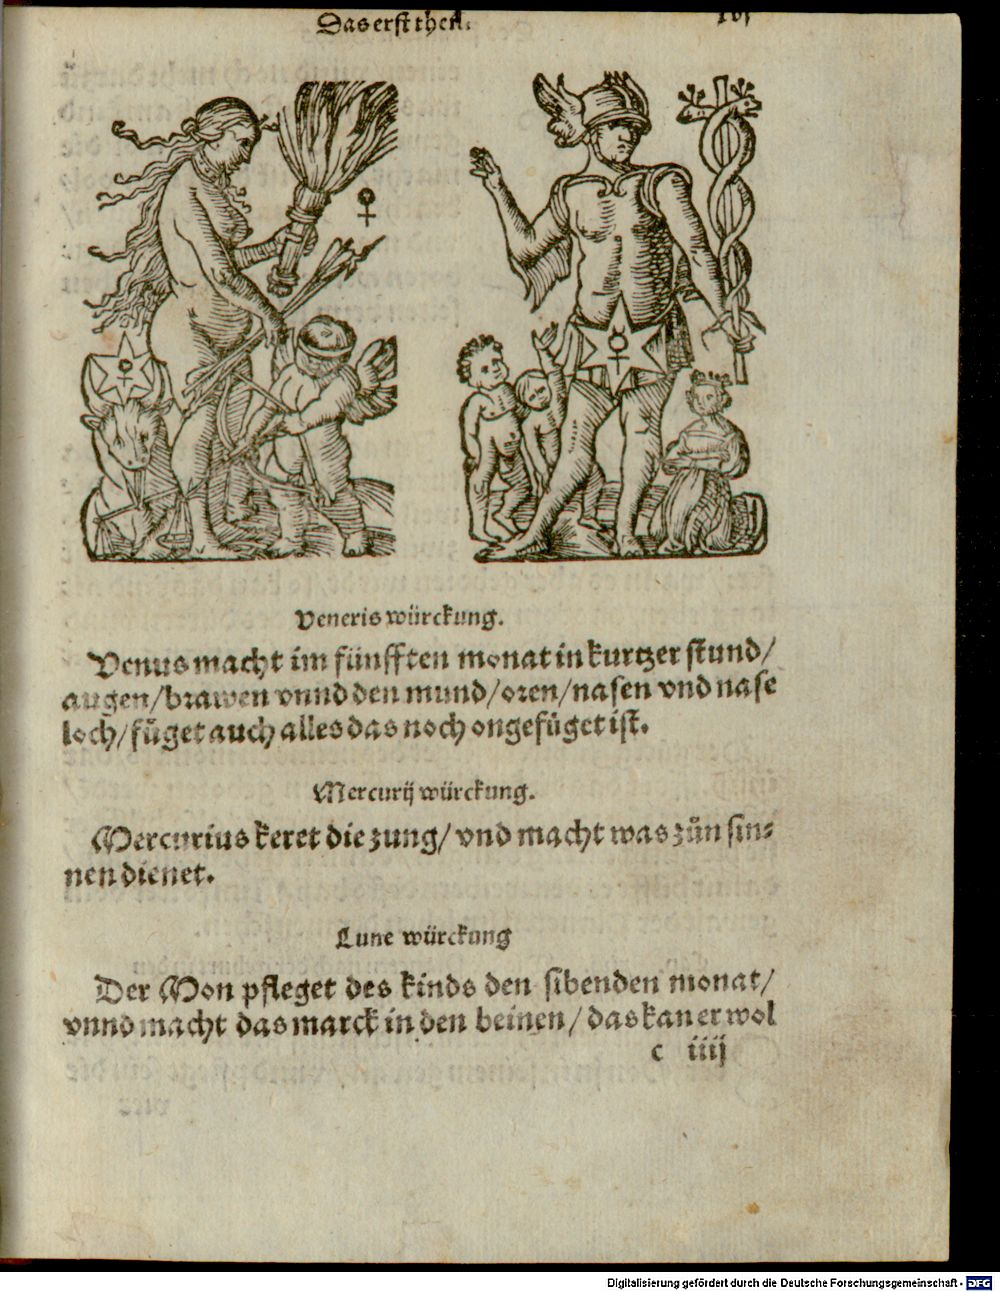 Das erst theil.
Veneris würckung.
Venus macht im fünfften monat in kurtzer stund/
augen/brawen vnnd den mund/oren/nasen vnd nase
loch/füget auch alles das noch ongefüget ist.
Mercurij würckung.
Mercurius keret die zung/ vnd macht was zůn sin⸗
nen dienet.
Lune würckung
Der Mon pfleget des kinds den sibenden monat/
vnnd macht das marck in den beinen/ das kan er wol
c iiij
Digitalisierung gefördert durch die Deutsche Forschungsgemeinschaft - DFG